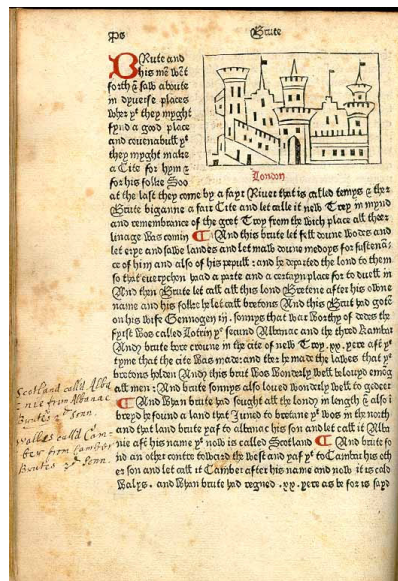 Brute
BRute and
his mē wēt
forth ⁊ saw aboute
in dyuerse places
wher yᵉ they myght
fynd a good place
and couenabull yᵗ
they myght make
a Cite for hym ⁊
for his folke Soo
London
at the last they come by a fayr Riuer that is called temys ⁊ ther
Brute biganne a fair Cite and let calle it new Troy in mynd
and remembrance of the gret Troy from the wich place all ther
linage was comin ¶ And this brute let fell doune wodes and
let erye and sowe landes and let mow doune medows for sustenā
ce of him and also of his pepull: and he departed the lond to them
so that euerychon had a parte and a certayn place for to duell in
And then Brute let call all this lond Bretene after his owne
name and his folke he let call bretons And this Brut had gotē
on his wife Gennogen iij. sonnys that war worthy of dedes the
fyrst was called Lotrin yᵉ secund Albinac and the third Kambar
And brute bore croune in the cite of new Troy .xx. yere aft yᵉ
tyme that the cite was made: and ther he made the lawes that yᵉ
bretons holden And this brut was wonderly well beloued emōg
all men: And brute sonnys also loued wonderly well to gedeer
¶ And whan brute had sought all the lond in length ⁊ also ī
breyd he found a land that Juned to bretane yᵗ wos in the north
and that land brute yaf to albinac his son and let call it Alba
nie aft his name yᵗ now is called Scotland ¶ And brute fo
nd an other contre toward the west and yaf yᵗ to Cambar his oth
er son and let call it Camber after his name and now it is cald
Walys. and whan brute had regned .xx. yere as be for is sayd
Scotland call'd Alba
nie from Albanac
Brutes 2ᵈ Sonn.
Walles call'd Cam-
ber from Cambar
Brutes 3ᵈ Sonn